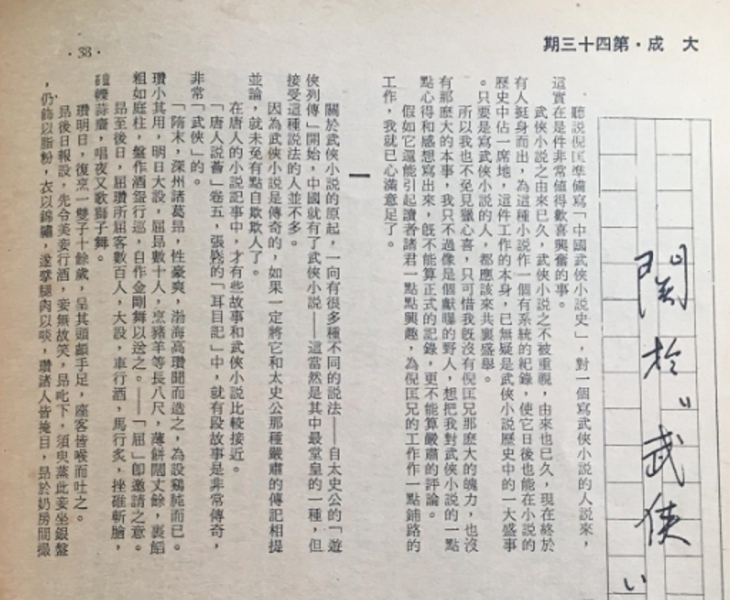 大成・第四十三期
・38・
關於"武俠"
聽說倪匡準備寫「中國武俠小說史」，對一個寫武俠小說的人說來，
這實在是件非常值得歡喜興奮的事。
武俠小說之由來已久，武俠小說之不被重視，由來也已久，現在終於
有人挺身而出，為這種小說作一個有系統的紀錄，使它日後也能在小說的
歷史中佔一席地，這件工作的本身，已無疑是武俠小說歷史中的一大盛事
。只要是寫武俠小說的人，都應該來共襄盛舉。
所以我也不免見獵心喜，只可惜我既沒有倪匡兄那麼大的魄力，也沒
有那麼大的本事，我只不過像是個獻曝的野人，想把我對武俠小說的一點
點心得和感想寫出來，既不能算正式的記錄，更不能算嚴肅的評論。
假如它還能引起讀者諸君一點點興趣，為倪匡兄的工作作一點鋪路的
工作，我就已心滿意足了。
一
關於武俠小說的原起，一向有很多種不同的說法——自太史公的「遊
俠列傳」開始，中國就有了武俠小說——這當然是其中最堂皇的一種，但
接受這種說法的人並不多。
因為武俠小說是傳奇的，如果一定將它和太史公那種嚴肅的傳記相提
並論，就未免有點自欺欺人了。
在唐人的小說記事中，才有些故事和武俠小說比較接近。
「唐人說薈」卷五，張鷟的「耳目記」中，就有段故事是非常傳奇，
非常「武俠」的。
「隋末，深州諸葛昂，性豪爽，渤海高瓚聞而造之，為設雞肫而已。
瓚小其用，明日大設，屈昂數十人，烹豬羊等長八尺，薄餅闊丈餘，裹餡
粗如庭柱，盤作酒盌行巡，自作金剛舞以送之。——「屈」卽邀請之意。
昂至後日，屈瓚所屈客數百人，大設，車行酒，馬行炙，挫碓斬膾，
磑轢蒜虀，唱夜叉歌獅子舞。
瓚明日，復烹一雙子十餘歲，呈其頭顱手足，座客皆喉而吐之。
昂後日報設，先令美妾行酒，妾無故笑，昂叱下，須臾蒸此妾坐銀盤
，仍飾以脂粉，衣以錦繡，遂擘腿肉以啖，瓚諸人皆掩目，昂於奶房間撮